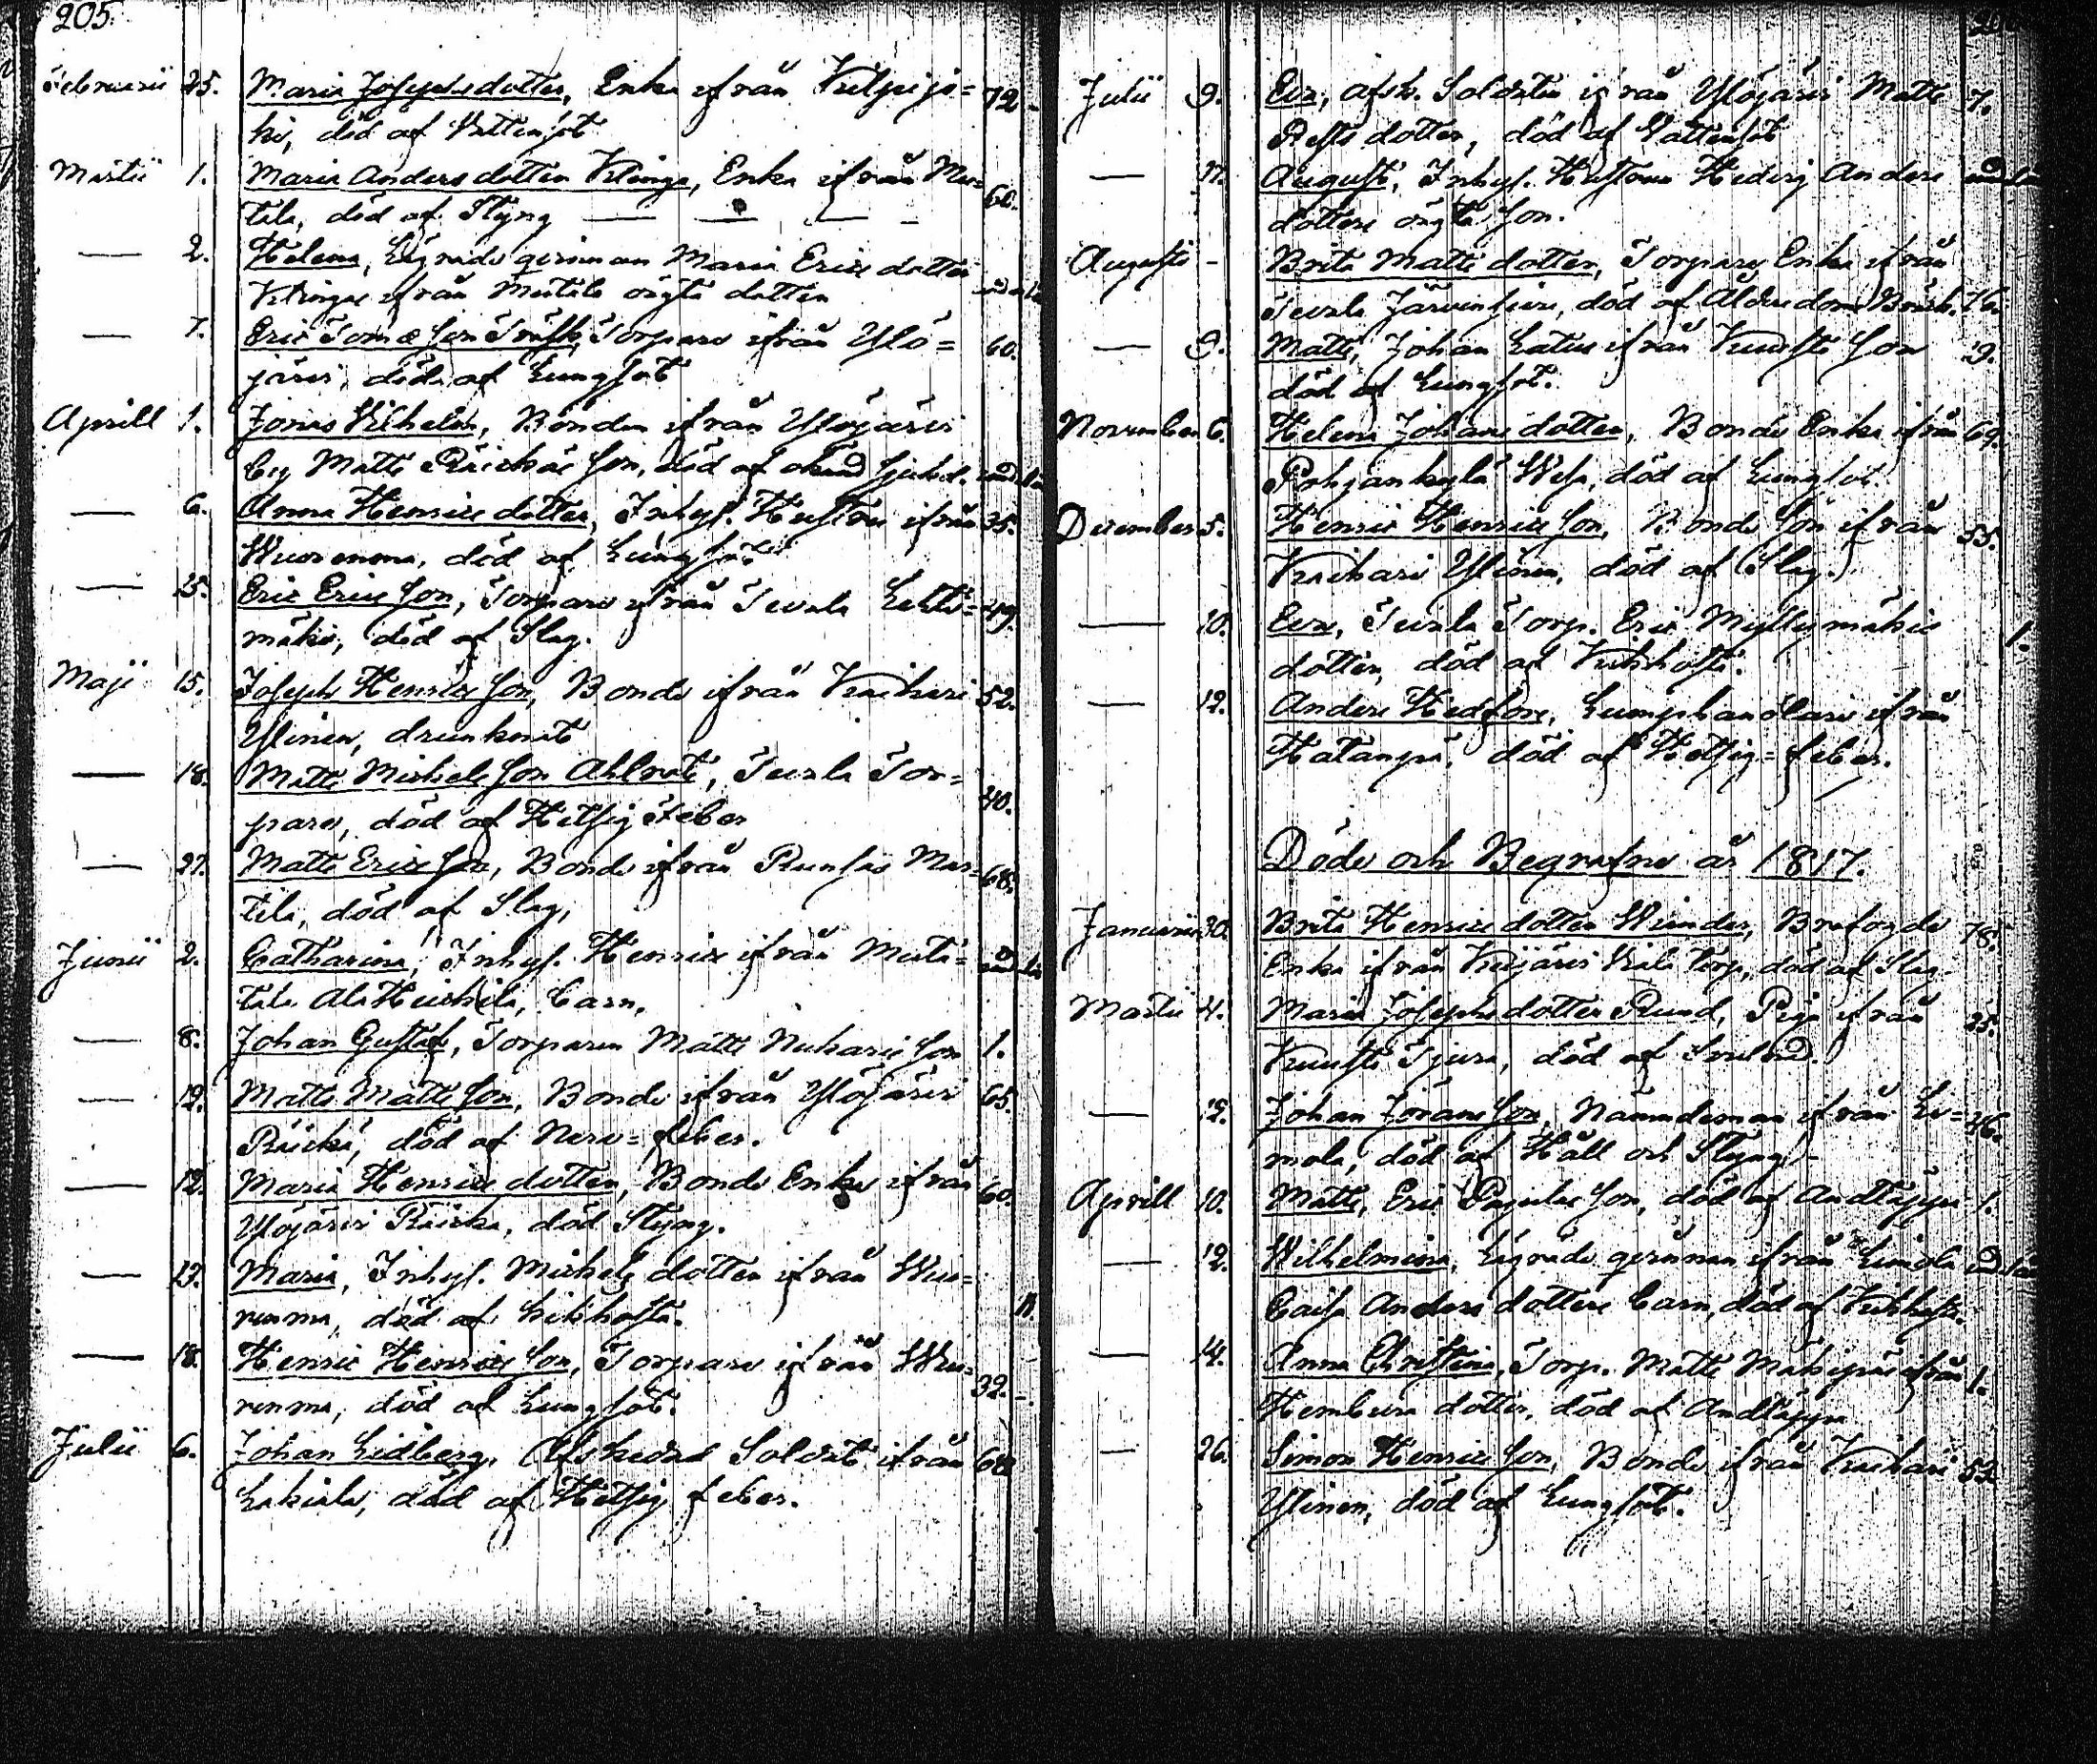 205.
Februarii 25. Maria Josephsdotter, Enka ifrån Kilpijo= 72
ki, död af Vattusot
Martii 1. Maria Andersdotter Kitinga, Enka ifrån Mu= 60.
tila, död af Styng
— 2. Helena, Lägrade qvinnan Maria Erics dotter
ifrån Mutala oägta dotter
— 7. Eric Tomæ Son Träsk, Torpare ifrån Ylö= 60.
järvi, död af Lungsot
Aprill 1. Jonas Vilhelm, Bonden ifrån Ylöjärvi
by Matts Räickäs Son, död af okänd sjukd.
— 6. Anna Henrics dotter, Inhys. Hustru ifrån 35.
Wuorenma, död af Lungsot
— 25. Eric Erics Son, Torpare ifrån Teivala Lehti= 49.
mäki, död af Slag.
Maji 15. Joseph Henrics Son, Bonde ifrån Keihari 52.
Ylinen, drunknat
— 18. Matts Michels Son Ahlrot, Teivala Tor= 40.
pare, död af Hetsig Feber
— 27. Matts Erics Son, Bonde ifrån Runsas Mar= 68.
tila, död af Slag,
Junii 2. Catharina, Inhys. Henrics ifrån Muta=
tala Ala Heickilä, barn,
— 8. Johan Gustaf, Torparen Matts Niuharis Son 1.
— 12. Matts Matts Son, Bonde ifrån Ylöjärvi 65.
Räickä, död af Nerv=feber.
— 12. Maria Henrics dotter, Bonde Enka ifrån 60.
Ylöjärvi Räicka, död Styng.
— 13. Maria, Inhys. Michels dotter ifrån Wuo=
renma, död af kikhosta. 11.
— 18. Henric Henrics Son, Torpare ifrån Wuo= 32.
renma, död af Lungsot.
Julii 6. Johan Lidberg, Afskedad Soldat ifrån 68
Lakiala, död af Hetsig feber.
Julii 9. Eva, afsk. Soldaten ifrån Ylöjärvi Matts 7.
dotter, död af Vattusot
— August, Inhys. Hustrun Hedvig Anders
dotters oägta Son.
Augusti - Brita Matts dotter, Torpare Enka ifrån
Teivala Järvensivu, död af Ålderdoms Bräck. 76.
— 9. Matts, Johan Latus ifrån Kuusto Son 9.
död af Lungsot.
November 6. Helena Johans dotter, Bonde Enka ifrån 69.
Pohjankylä Wesa, död af Lungsot.
December 5. Henric Henrics Son, Bonde Son ifrån 55.
Keihari Ylinen, död af Slag.
— 10. Eva, Teivala Torp. Eric Myllymäkis
dotter, död af Kikhosta. 1.
— 12. Anders Hedfors, Lumphandlare ifrån
Hatanpä, död af Hetsig=feber.
Döde och Begrafne år 1817.
Januarii 30. Brita Henrics dotter Winder, Bruforgde 78.
Enka ifrån Keijärvi Torp, död af Slag.
Martii 4. Maria Josephs dotter Rund, Piga ifrån 25.
Kuusto Tjura, död af
— 12. Johan Jörans Son, Nämndeman ifrån Li= 46.
mola, död af Håll och Styng -
Aprill 10. Matts, Eric Pajulas Son, död af Andtäppa 1.
— 12. Wilhelmina, Lägrade qvinnan ifrån
Caisa Anders dotters barn, död af Kikhosta.
— 14. Anna Christina, Torp. Matts Mäkipäs ifrån 1.
dotter, död af Andtäppa
— 26. Simon Henrics Son, Bonde ifrån Keihari 52
Ylinen, död af Lungsot.